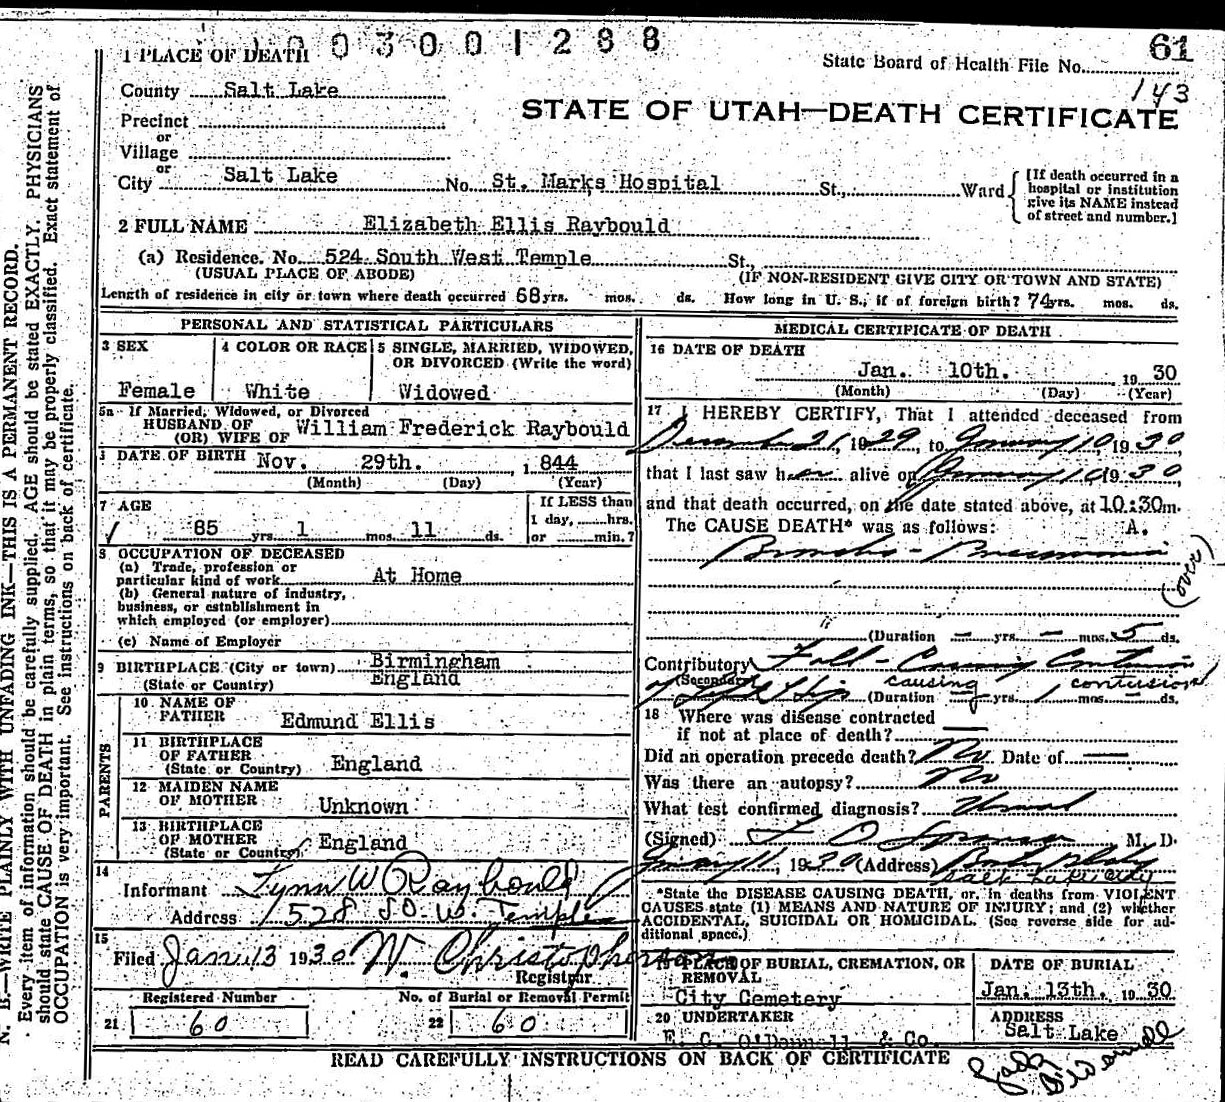 1003001288
61
1 PLACE OF DEATH
State Board of Health File No.
143
County Salt Lake
STATE OF UTAH—DEATH CERTIFICATE
Precinct
or
Village
or
City Salt Lake No. St. Marks Hospital St., Ward
[If death occurred in a
hospital or institution
give its NAME instead
of street and number.]
2 FULL NAME Elizabeth Ellis Raybould
(a) Residence. No. 524 South West Temple St.,
(USUAL PLACE OF ABODE) (IF NON-RESIDENT GIVE CITY OR TOWN AND STATE)
Length of residence in city or town where death occurred 68 yrs. mos. ds. How long in U. S., if of foreign birth? 74 yrs. mos. ds.
PERSONAL AND STATISTICAL PARTICULARS
3 SEX
Female
4 COLOR OR RACE
White
5 SINGLE, MARRIED, WIDOWED,
OR DIVORCED (Write the word)
Widowed
5a If Married, Widowed, or Divorced
HUSBAND OF
(OR) WIFE OF William Frederick Raybould
DATE OF BIRTH Nov. 29th. 1844
(Month) (Day) (Year)
7 AGE
85 yrs. 1 mos. 11 ds.
If LESS than
1 day, hrs.
or min.?
8 OCCUPATION OF DECEASED
(a) Trade, profession or
particular kind of work At Home
(b) General nature of industry,
business, or establishment in
which employed (or employer)
(c) Name of Employer
9 BIRTHPLACE (City or town) Birmingham
(State or Country) England
PARENTS
10 NAME OF
FATHER Edmund Ellis
11 BIRTHPLACE
OF FATHER
(State or Country) England
12 MAIDEN NAME
OF MOTHER Unknown
13 BIRTHPLACE
OF MOTHER
(State or Country) England
14
Informant Lynn W Raybould
Address 1528 SO. W. Temple
15
Filed Jan. 13 1930 W. Christopherson
Registrar
Registered Number
21 60
No. of Burial or Removal Permit
22 60
MEDICAL CERTIFICATE OF DEATH
16 DATE OF DEATH
Jan. 10th. 1930
(Month) (Day) (Year)
17 I HEREBY CERTIFY, That I attended deceased from
December 21, 1929, to January 10, 1930
that I last saw her alive on January 10 1930,
and that death occurred, on the date stated above, at 10:30m.
The CAUSE DEATH* was as follows: A.
Broncho-Pneumonia
(over)
(Duration — yrs. — mos. 5 ds.
Contributory Fall - Causing Contusion
(Secondary) causing contusion
of Hip (Duration — yrs. 1 mos. — ds.
18 Where was disease contracted
if not at place of death? —
Did an operation precede death? No Date of —
Was there an autopsy? No
What test confirmed diagnosis? Usual
(Signed) M. D.
January 11, 1930 (Address)
Salt Lake City
*State the DISEASE CAUSING DEATH, or, in deaths from VIOLENT
CAUSES state (1) MEANS AND NATURE OF INJURY; and (2) whether
ACCIDENTAL, SUICIDAL OR HOMICIDAL. (See reverse side for ad-
ditional space.)
19 PLACE OF BURIAL, CREMATION, OR
REMOVAL
City Cemetery
DATE OF BURIAL
Jan. 13th. 1930
20 UNDERTAKER
E. G. O'Donnell & Co.
ADDRESS
Salt Lake
READ CAREFULLY INSTRUCTIONS ON BACK OF CERTIFICATE
N. B.—WRITE PLAINLY WITH UNFADING INK—THIS IS A PERMANENT RECORD.
Every item of information should be carefully supplied. AGE should be stated EXACTLY. PHYSICIANS
should state CAUSE OF DEATH in plain terms, so that it may be properly classified. Exact statement of
OCCUPATION is very important. See instructions on back of certificate.